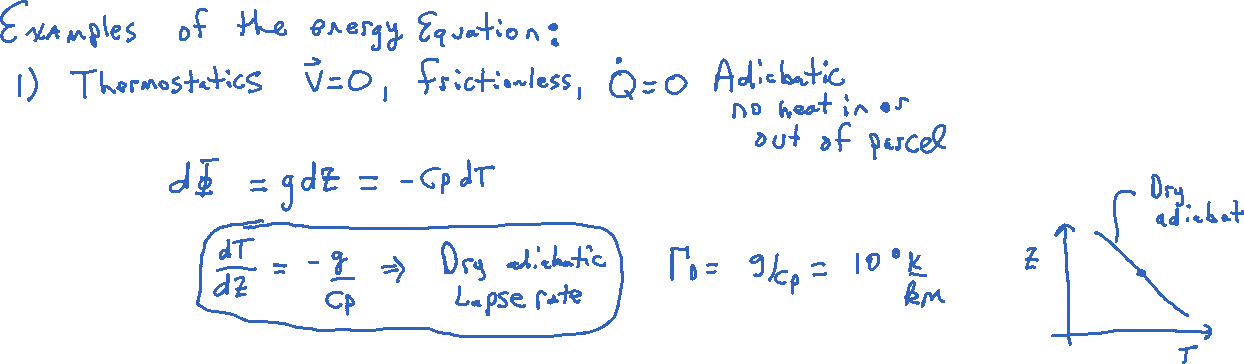 Examples of the energy Equation:
1) Thermostatics V⃗=0, frictionless, Q̇=0 Adiabatic
no heat in or
out of parcel
dΦ = gdz = -Cp dT
dT/dz = -g/Cp ⇒ Dry adiabatic Lapse rate
Γ_D = g/Cp = 10 °K/km
Dry
adiabat
Z
T